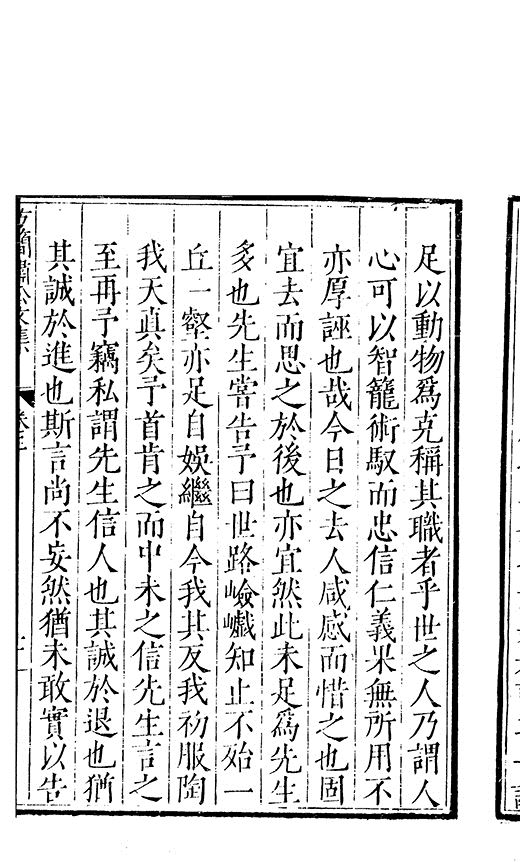 足以動物爲克稱其職者乎世之人乃謂人
心可以智籠術馭而忠信仁義果無所用不
亦厚誣也哉今日之去人咸感而惜之也固
宜去而思之於後也亦宜然此未足爲先生
多也先生嘗告予曰世路嶮巇知止不殆一
丘一壑亦足自娛繼自今我其反我初服陶
我天真矣予首肯之而中未之信先生言之
至再予竊私謂先生信人也其誠於退也猶
其誠於進也斯言尚不妄然猶未敢實以告